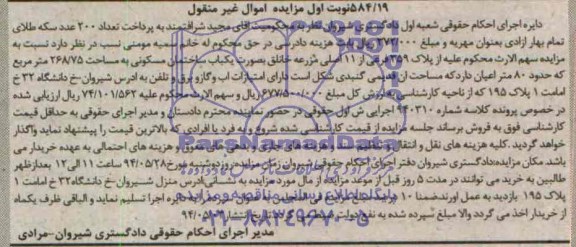 ۵۸۴/۱۹نوبت اول مزایده اموال غیر منقول
دایره اجرای احکام حقوقی شعبه اول دادگستری شیروان نظر به محکومیت آقای مجید شرافتمند به پرداخت تعداد ۲۰۰ عدد سکه طلای
تمام بهار ازادی بعنوان مهریه و مبلغ هزینه دادرسی در حق محکوم له خانم سمیه مومنی نسب در نظر دارد نسبت به
مزایده سهم الارث محکوم علیه از پلاک ۲۵۹ فرعی از ۱۱ اصلی مزرعه خانلق بصورت یکباب ساختمان مسکونی به مساحت ۲۶۸/۷۵ متر مربع
که حدود ۸۰ متر اعیان دارد که مساحت آن قدیمی گنبدی شکل است دارای امتیازات اب و گاز و برق و تلفن به ادرس شیروان -خ دانشگاه ۳۲ خ
امامت ۱ پلاک ۱۹۵ که از ناحیه کارشناسی به ارزش کل مبلغ ریال و سهم الارث محکوم علیه ۷۴/۱۰۱/۵۶۲ ریال ارزیابی شده
در خصوص پرونده کلاسه شماره ۹۴۰۳۱۰ اجرایی ش اول حقوقی در حضور نماینده محترم دادستان و مدیر اجرای حقوقی به حداقل قیمت
کارشناسی فوق به فروش برساند جلسه مزایده از قیمت کارشناسی شده شروع و به فرد یا افرادی که بالاترین قیمت را پیشنهاد نماید واگذار
خواهد گردید. کلیه هزینه های نقل و انتقال و هزینه های احتمالی به عهده خریدار می
باشد مکان مزایده:دادگستری شیروان دفتر اجرای احکام حقوقی شیروان زمان مزایده روز دوشنبه مورخ ۹۴/۰۵/۲۸ ساعت ۱۱ الی ۱۲ بعدازظهر
طالبین به خرید می توانند در مدت ۵ روز قبل از موعد مزایده از مال مورد مزایده به نشانی:ادرس منزل شیروان -خ دانشگاه ۳۲ خ امامت ۱
پلاک ۱۹۵ بازدید به عمل اورند.ضمنا ۱۰ درصد اجرا تسلیم نماید و الباقی ظرف یکماه
از خریدار اخذ می گردد والا مبلغ سپرده شده به نفع دولت ضبط می گردد تاریخ انتشار ۹۴/۰۵
مدیر اجرای احکام حقوقی دادگستری شیروان-مرادی
ParsNamadData
پایگاه اطلاع رسانی مناقصه و مزایده
۰۲۱-۸۸۳۴۹۶۷۰-۵